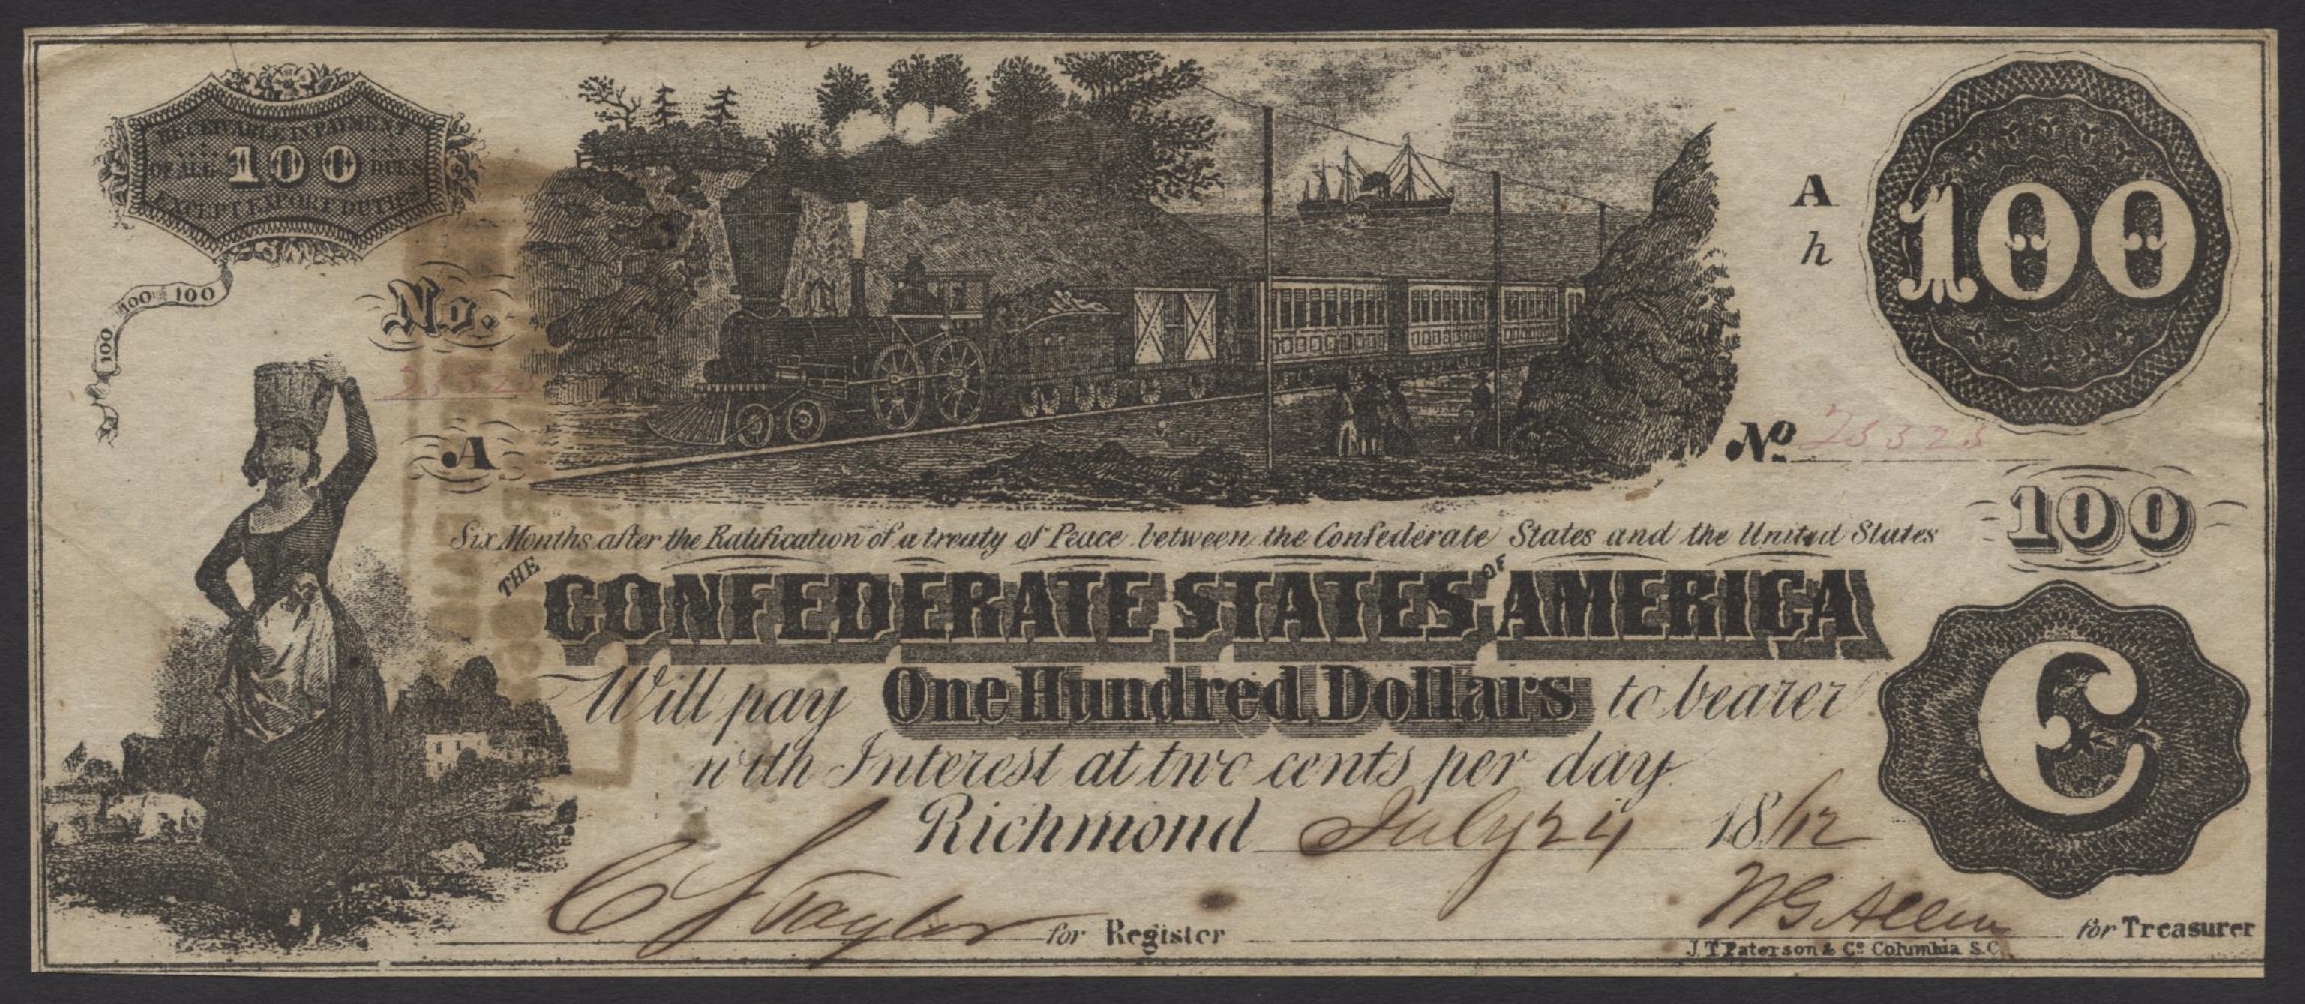 RECEIVABLE IN PAYMENT
OF ALL 100 DUES
EXCEPT EXPORT DUTIES
100 100 100
No.
A
A
h
100
No 23323
100
Six Months after the Ratification of a treaty of Peace between the Confederate States and the United States
THE CONFEDERATE STATES OF AMERICA
Will pay One Hundred Dollars to bearer
with Interest at two cents per day
Richmond July 24 1862
C
C L Taylor for Register
W G Allen for Treasurer
J.T. Paterson & Co Columbia S.C.